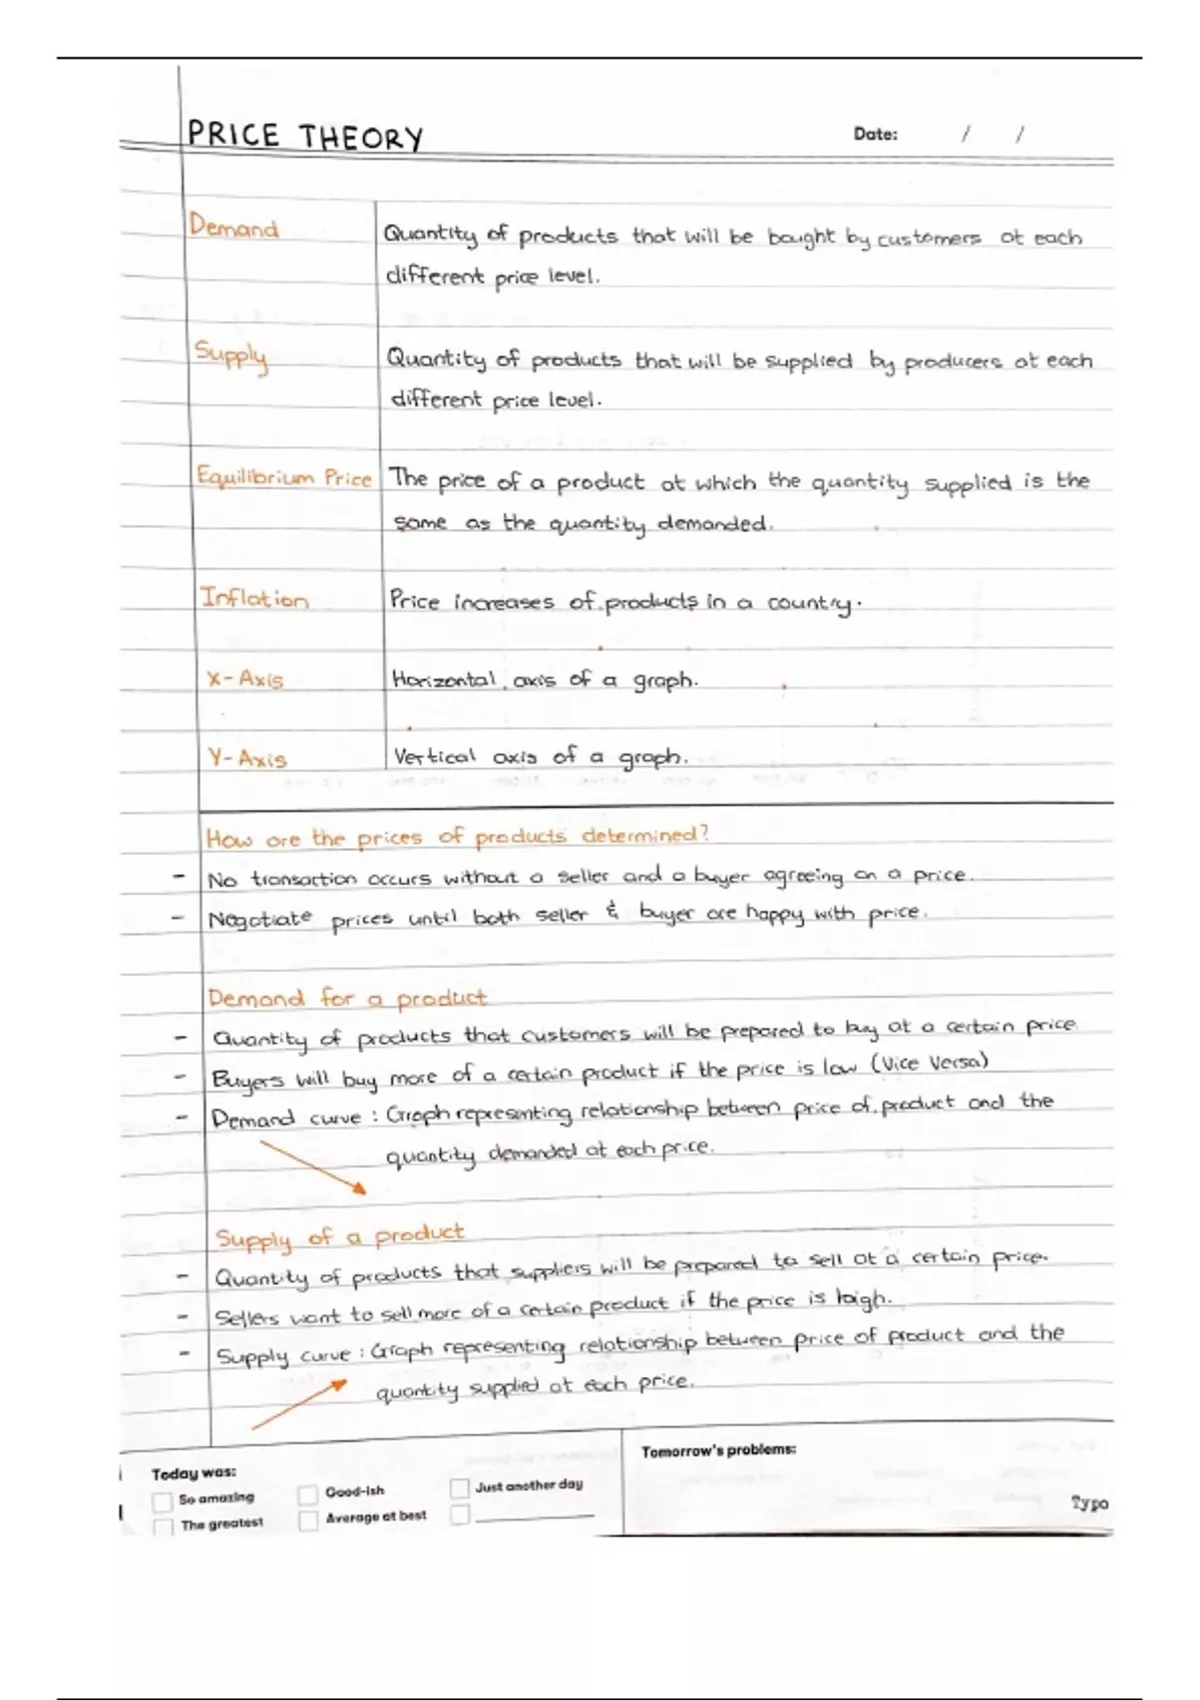 PRICE THEORY Date: / /
Demand Quantity of products that will be bought by customers at each
different price level.
Supply Quantity of products that will be supplied by producers at each
different price level.
Equilibrium Price The price of a product at which the quantity supplied is the
same as the quantity demanded.
Inflation Price increases of products in a country.
X-Axis Horizontal axis of a graph.
Y-Axis Vertical axis of a graph.
How are the prices of products determined?
- No transaction occurs without a seller and a buyer agreeing on a price.
- Negotiate prices until both seller & buyer are happy with price.
Demand for a product
- Quantity of products that customers will be prepared to buy at a certain price.
- Buyers will buy more of a certain product if the price is low (Vice Versa)
- Demand curve : Graph representing relationship between price of product and the
quantity demanded at each price.
Supply of a product
- Quantity of products that suppliers will be prepared to sell at a certain price.
- Sellers want to sell more of a certain product if the price is high.
- Supply curve : Graph representing relationship between price of product and the
quantity supplied at each price.
Today was:
So amazing Good-ish Just another day
The greatest Average at best
Tomorrow's problems:
Typo